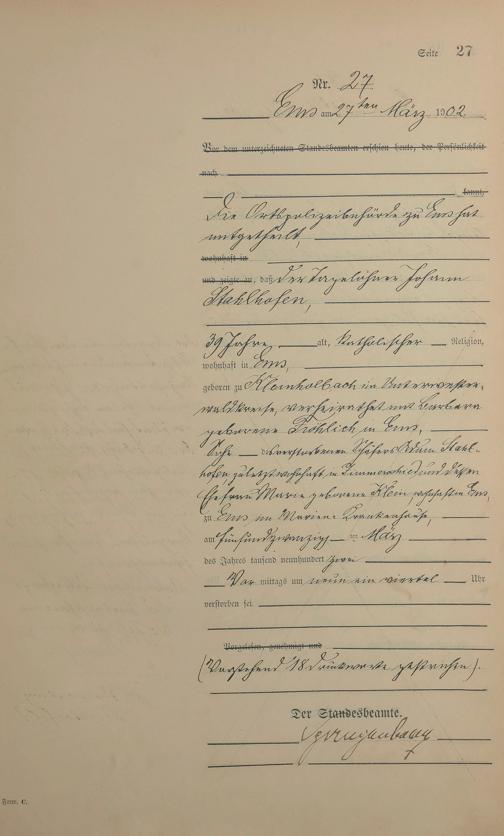 Seite 27
Nr. 27
Ems am 27ten März 1902.
Vor dem unterzeichneten Standesbeamten erschien heute, der Persönlichkeit
nach
kannt,
Die Ortspolizeibehörde zu Ems hat
mitgetheilt,
wohnhaft in
und zeigte an, daß der Tagelöhner Johann
Stahlhofen,
39 Jahre alt, katholischer Religion,
wohnhaft in Ems,
geboren zu Kleinholbach im Unterwester-
waldkreise, verheirathet mit Barbara
geborene Fröhlich in Ems,
Sohn des verstorbenen Schäfers Adam Stahl-
hofen, zuletzt wohnhaft in und dessen
Ehefrau Marie geborene Klein, wohnhaft in Ems,
zu Ems im Marien Krankenhause,
am fünfundzwanzig ten März
des Jahres tausend neunhundert zwei
Vor mittags um neun ein viertel Uhr
verstorben sei
Vorgelesen, genehmigt und
(Vorstehend 18 Druckworte gestrichen).
Der Standesbeamte.
Form. C.